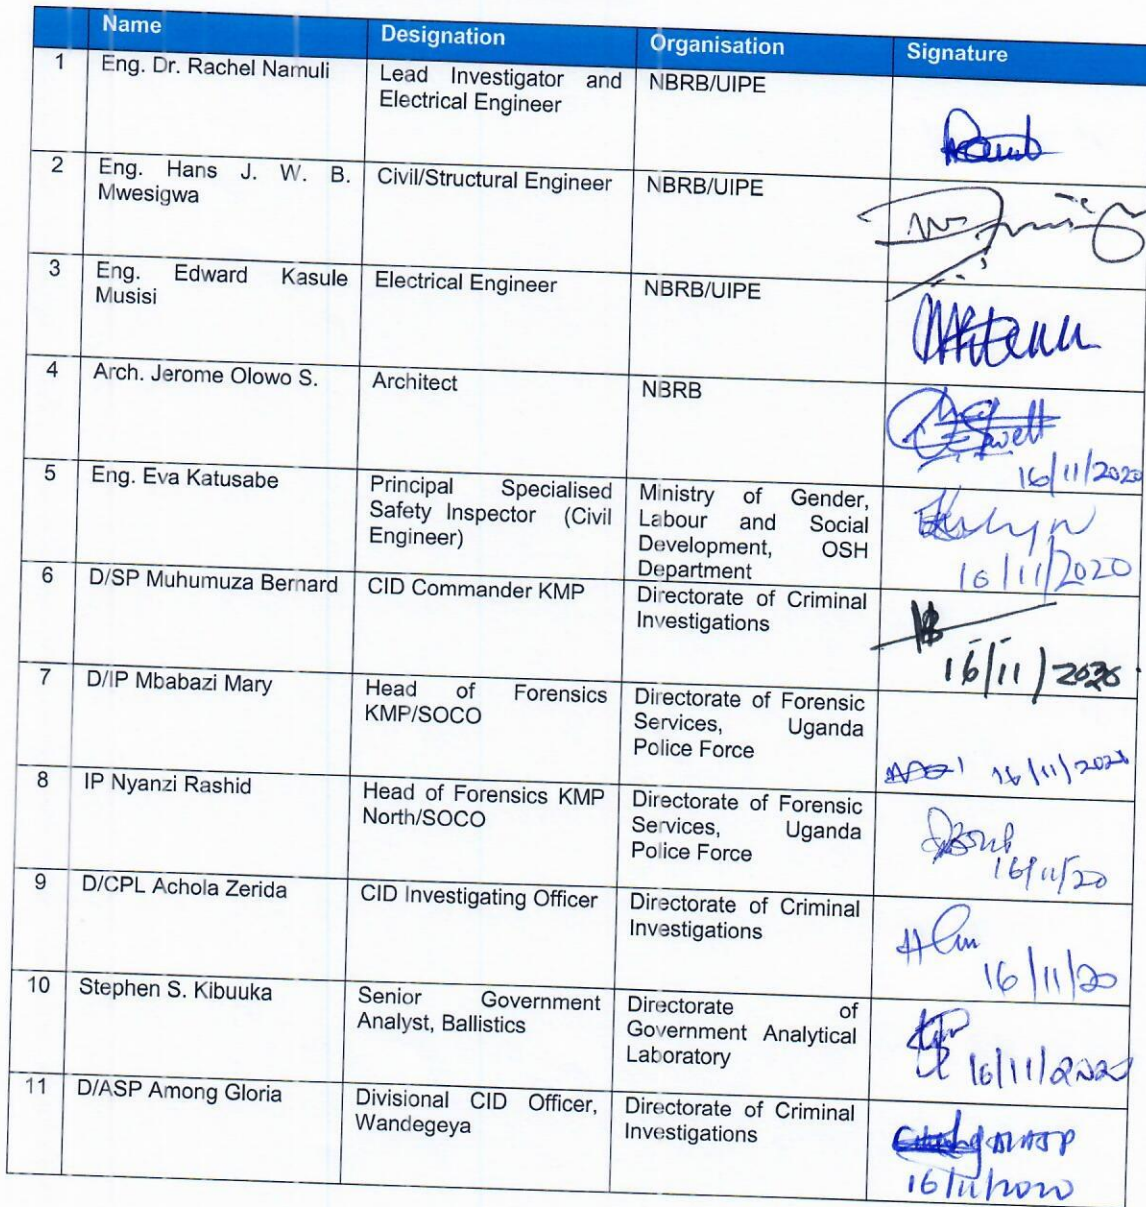 Name Designation Organisation Signature
1 Eng. Dr. Rachel Namuli Lead Investigator and NBRB/UIPE
Electrical Engineer
2 Eng. Hans J. W. B. Civil/Structural Engineer NBRB/UIPE
Mwesigwa
3 Eng. Edward Kasule Electrical Engineer NBRB/UIPE
Musisi
4 Arch. Jerome Olowo S. Architect NBRB
16/11/2020
5 Eng. Eva Katusabe Principal Specialised Ministry of Gender,
Safety Inspector (Civil Labour and Social
Engineer) Development, OSH
Department
16/11/2020
6 D/SP Muhumuza Bernard CID Commander KMP Directorate of Criminal
Investigations
16/11/2020
7 D/IP Mbabazi Mary Head of Forensics Directorate of Forensic
KMP/SOCO Services, Uganda
Police Force
16/11/2020
8 IP Nyanzi Rashid Head of Forensics KMP Directorate of Forensic
North/SOCO Services, Uganda
Police Force
16/11/20
9 D/CPL Achola Zerida CID Investigating Officer Directorate of Criminal
Investigations
16/11/20
10 Stephen S. Kibuuka Senior Government Directorate of
Analyst, Ballistics Government Analytical
Laboratory
16/11/2020
11 D/ASP Among Gloria Divisional CID Officer, Directorate of Criminal
Wandegeya Investigations
16/11/2020